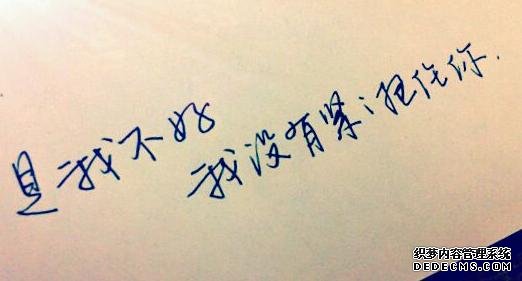 是我不好
我没有紧紧抱住你.
织梦内容管理系统
DEDECMS.COM